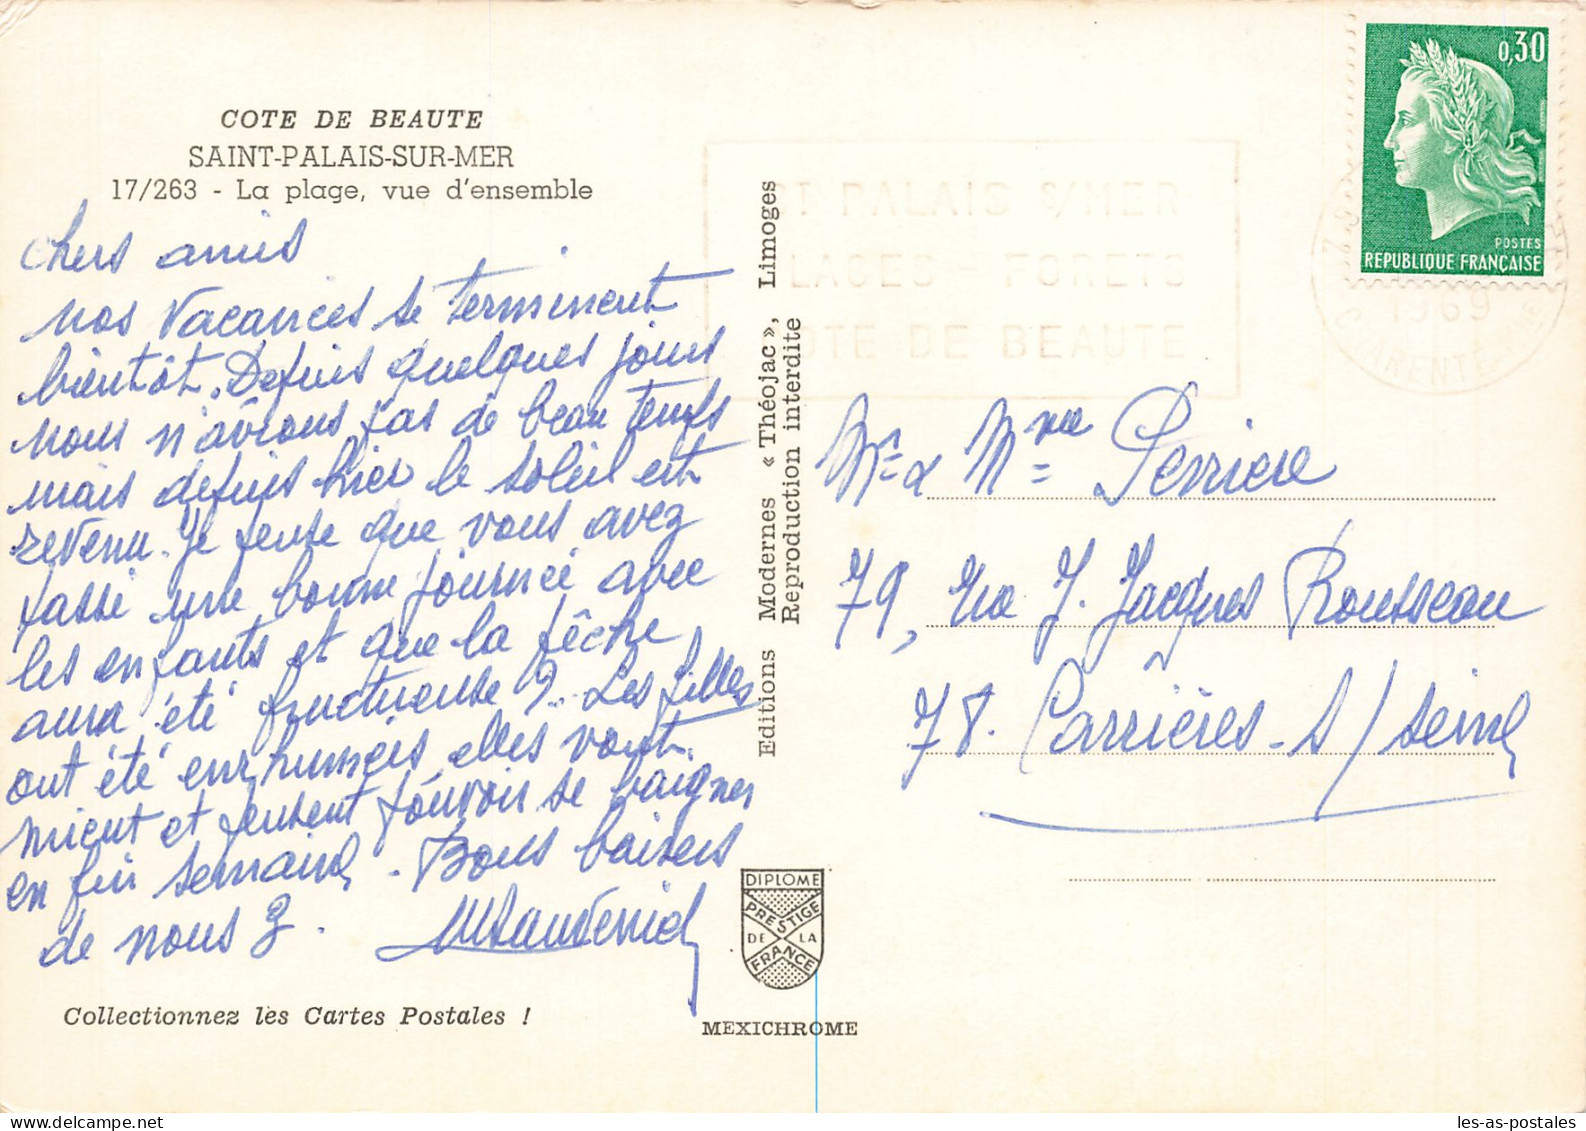 COTE DE BEAUTE
SAINT-PALAIS-SUR-MER
17/263 - La plage, vue d'ensemble
Chers amis
nos vacances se terminent
bientôt. Depuis quelques jours
nous n'avions pas de beau temps
mais depuis hier le soleil est
revenu. Je pense que vous avez
passé une bonne journée avec
les enfants et que la pêche
aura été fructueuse ?.. Les filles
ont été enrhumées elles vont
mieux et pensent pouvoir se baigner
en fin semaine. Bons baisers
de nous 3.
Collectionnez les Cartes Postales !
Editions Modernes « Théojac », Limoges
Reproduction interdite
DIPLOME
PRESTIGE
DE LA
FRANCE
MEXICHROME
ST PALAIS S/MER
PLAGES - FORETS
COTE DE BEAUTE
0,30
POSTES
REPUBLIQUE FRANÇAISE
1969
CHARENTE
Mr & Mme Perriere
79, rue J. Jacques Rousseau
78. Carrières-s/seine
les-as-postales